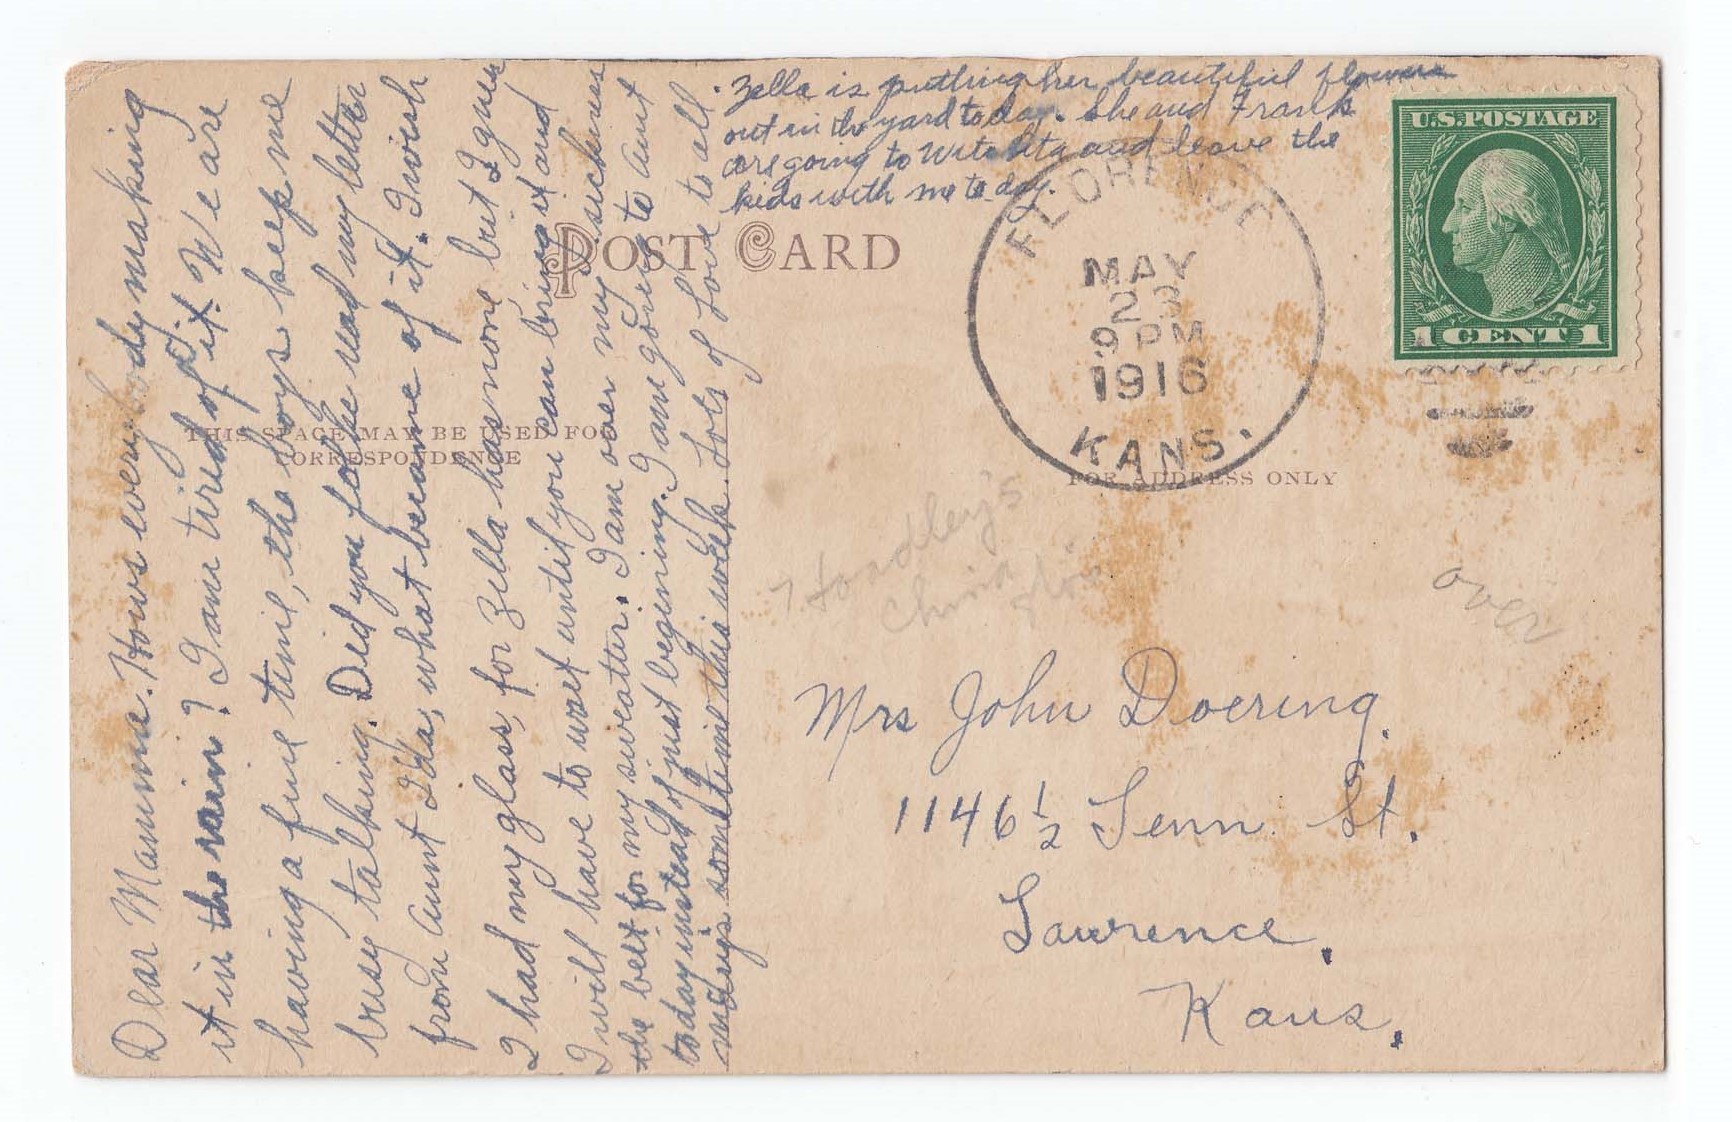 Dear Mamma. Hows everybody making
it in the rain? I am tired of it. We are
having a fine time, the boys keep me
busy talking. Did you folks read my letter
from Aunt Ida, what became of it. I wish
I had my glass, for Zella has none but I guess
I will have to wait until you can bring it and
the belt for my sweatter. I am over my sickness
today instead of just beginning. I am going to Aunt
sometime this week. Lots of Love to all
. Zella is putting her beautiful flowers
out in the yard today. She and Frank
are going to Witchita and leave the
kids with me to day.
POST CARD
THIS SPACE MAY BE USED FOR
CORRESPONDENCE
FOR ADDRESS ONLY
FLORENCE
MAY
23
9 PM
1916
KANS.
U.S. POSTAGE
1 CENT 1
Hoadley's
over
Mrs John Doering.
1146 1/2 Tenn. St.
Lawrence.
Kans.